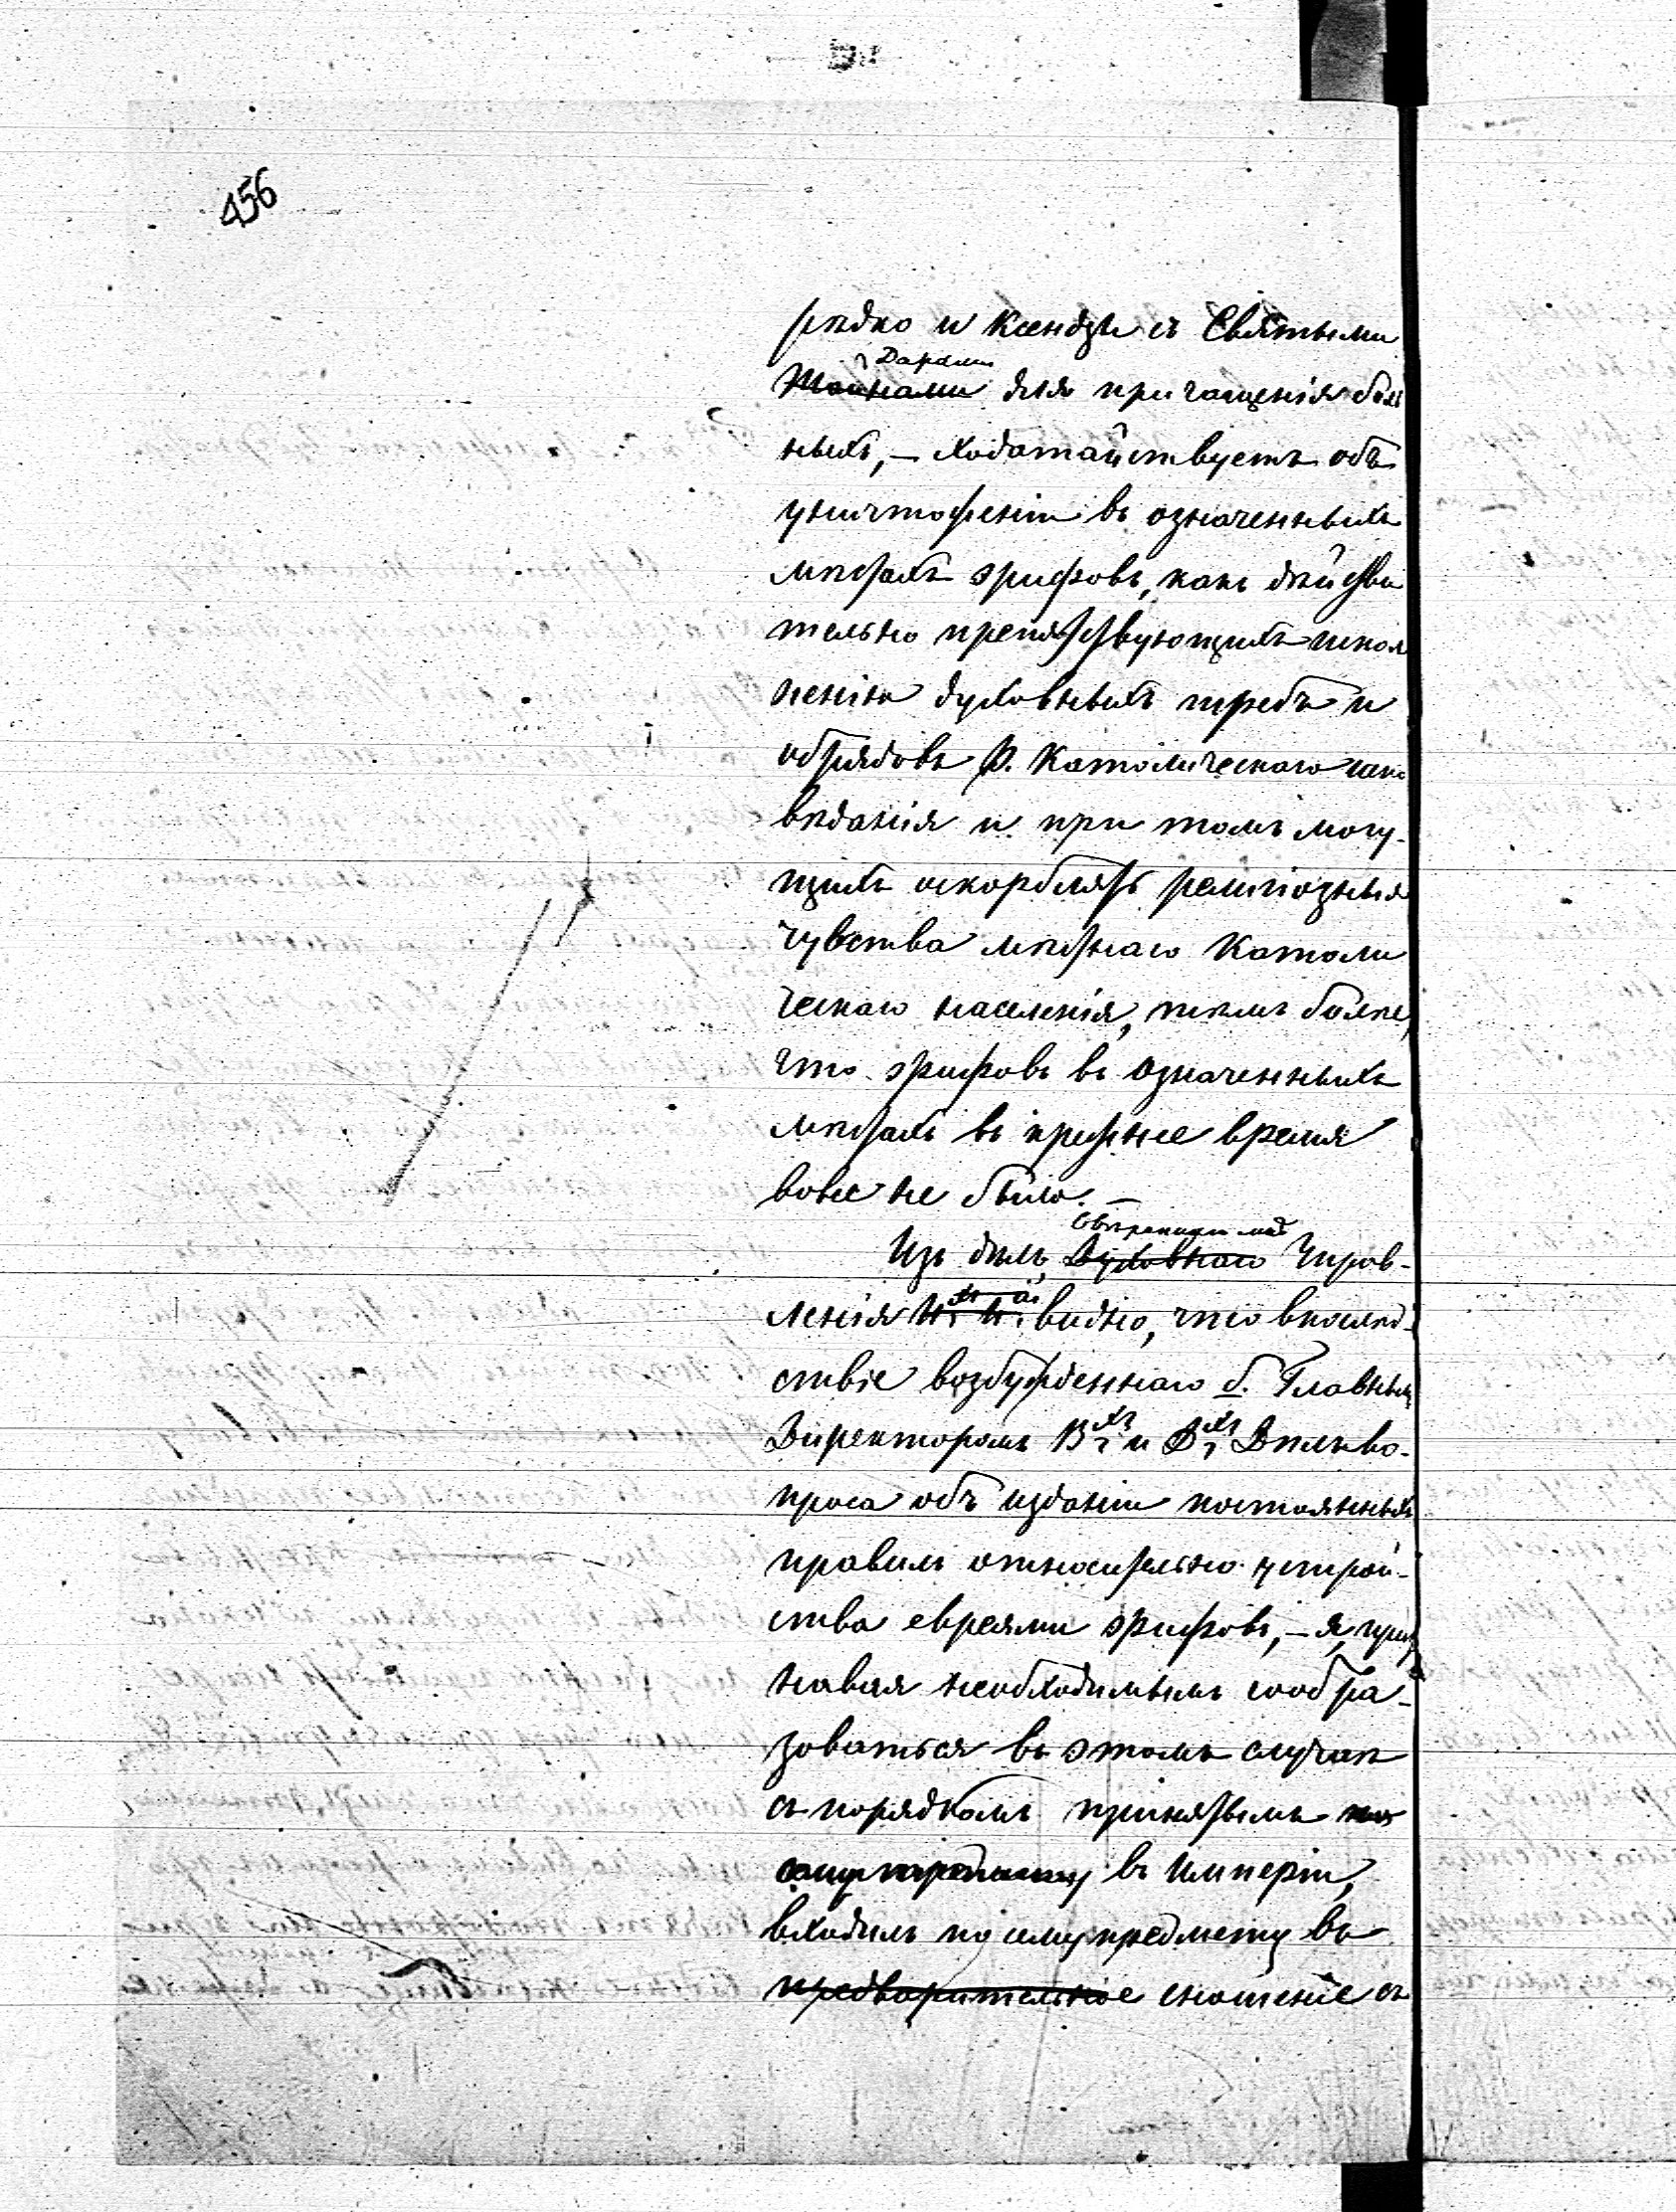 456
рѣдко и ксендзы съ Святыми
Дарами
Тайнами для причащенія боль
ныхъ, – ходатайствуетъ объ
уничтоженіи въ означенныхъ
мѣстахъ эрифовъ, какъ дѣйстви
тельно препятствующихъ испол
ненію духовныхъ требъ и
обрядовъ Р. Католическаго испо
вѣданія и при томъ могу-
щихъ оскорблять религіозныя
чувства мѣстнаго Католи
ческаго населенія, тѣмъ болѣе,
что эрифовъ въ означенныхъ
мѣстахъ въ прежнее время
вовсе не было. –
Изъ дѣлъ Духовнаго Управ-
ленія видно, что впослѣд-
ствіе возбужденнаго б. Главнымъ
Директоромъ В.хъ и Д.хъ Дѣлъ во-
проса объ изданіи постоянныхъ
правилъ относительно устрой-
ства евреями эрифовъ, – я, приз
навая необходимымъ сообра-
зоваться въ этомъ случаѣ
съ порядкомъ принятымъ по
сему предмету въ Имперіи,
входилъ по сему предмету въ
предварительное сношеніе съ